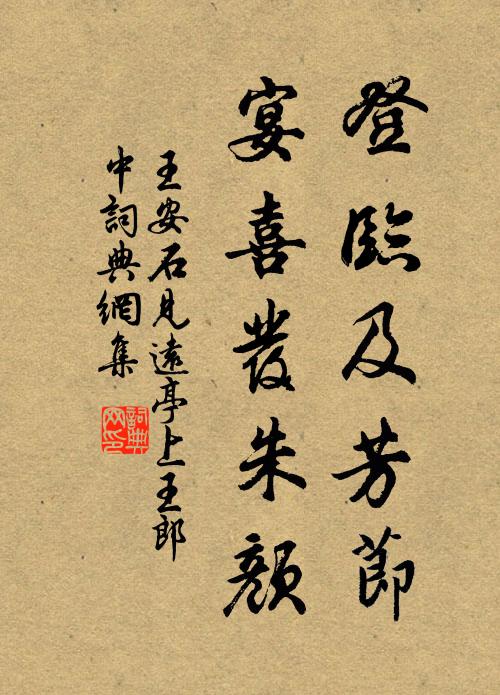 登臨及芳節
宴喜發朱顏
王安石見遠亭上王郎
中詞典網集
詞典網印